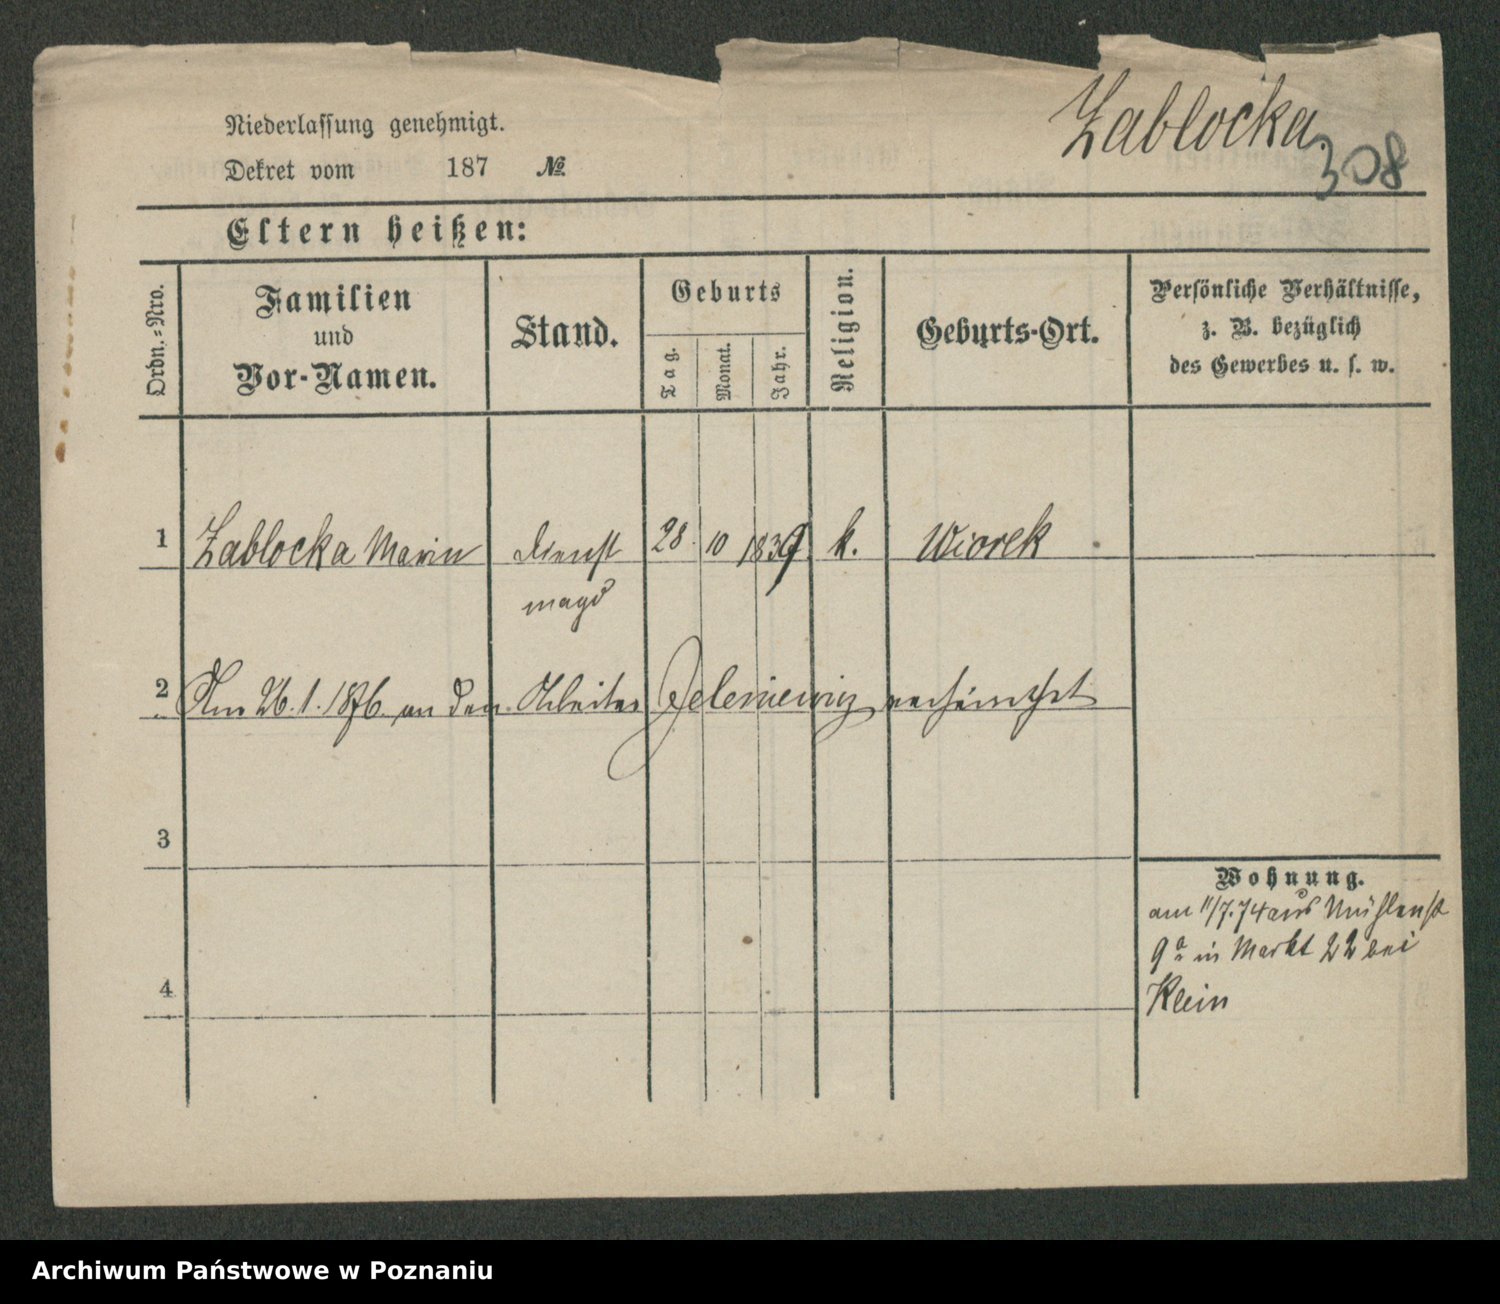 Zablocka.
308
Niederlassung genehmigt.
Dekret vom 187 №
Eltern heißen:
Ordn.-Nro.
Familien
und
Vor-Namen.
Stand.
Geburts
Tag.
Monat.
Jahr.
Religion.
Geburts-Ort.
Persönliche Verhältnisse,
z. B. bezüglich
des Gewerbes u. s. w.
1 Zablocka Marie Dienst 28. 10 1839 k. Wiorek
magd
2 Am 26.1.1876 an den Arbeiter Jeleniewicz verheirathet
3
4
Wohnung.
am 11/7.74 aus Mühlenst
9a in Markt 22 bei
Klein
Archiwum Państwowe w Poznaniu